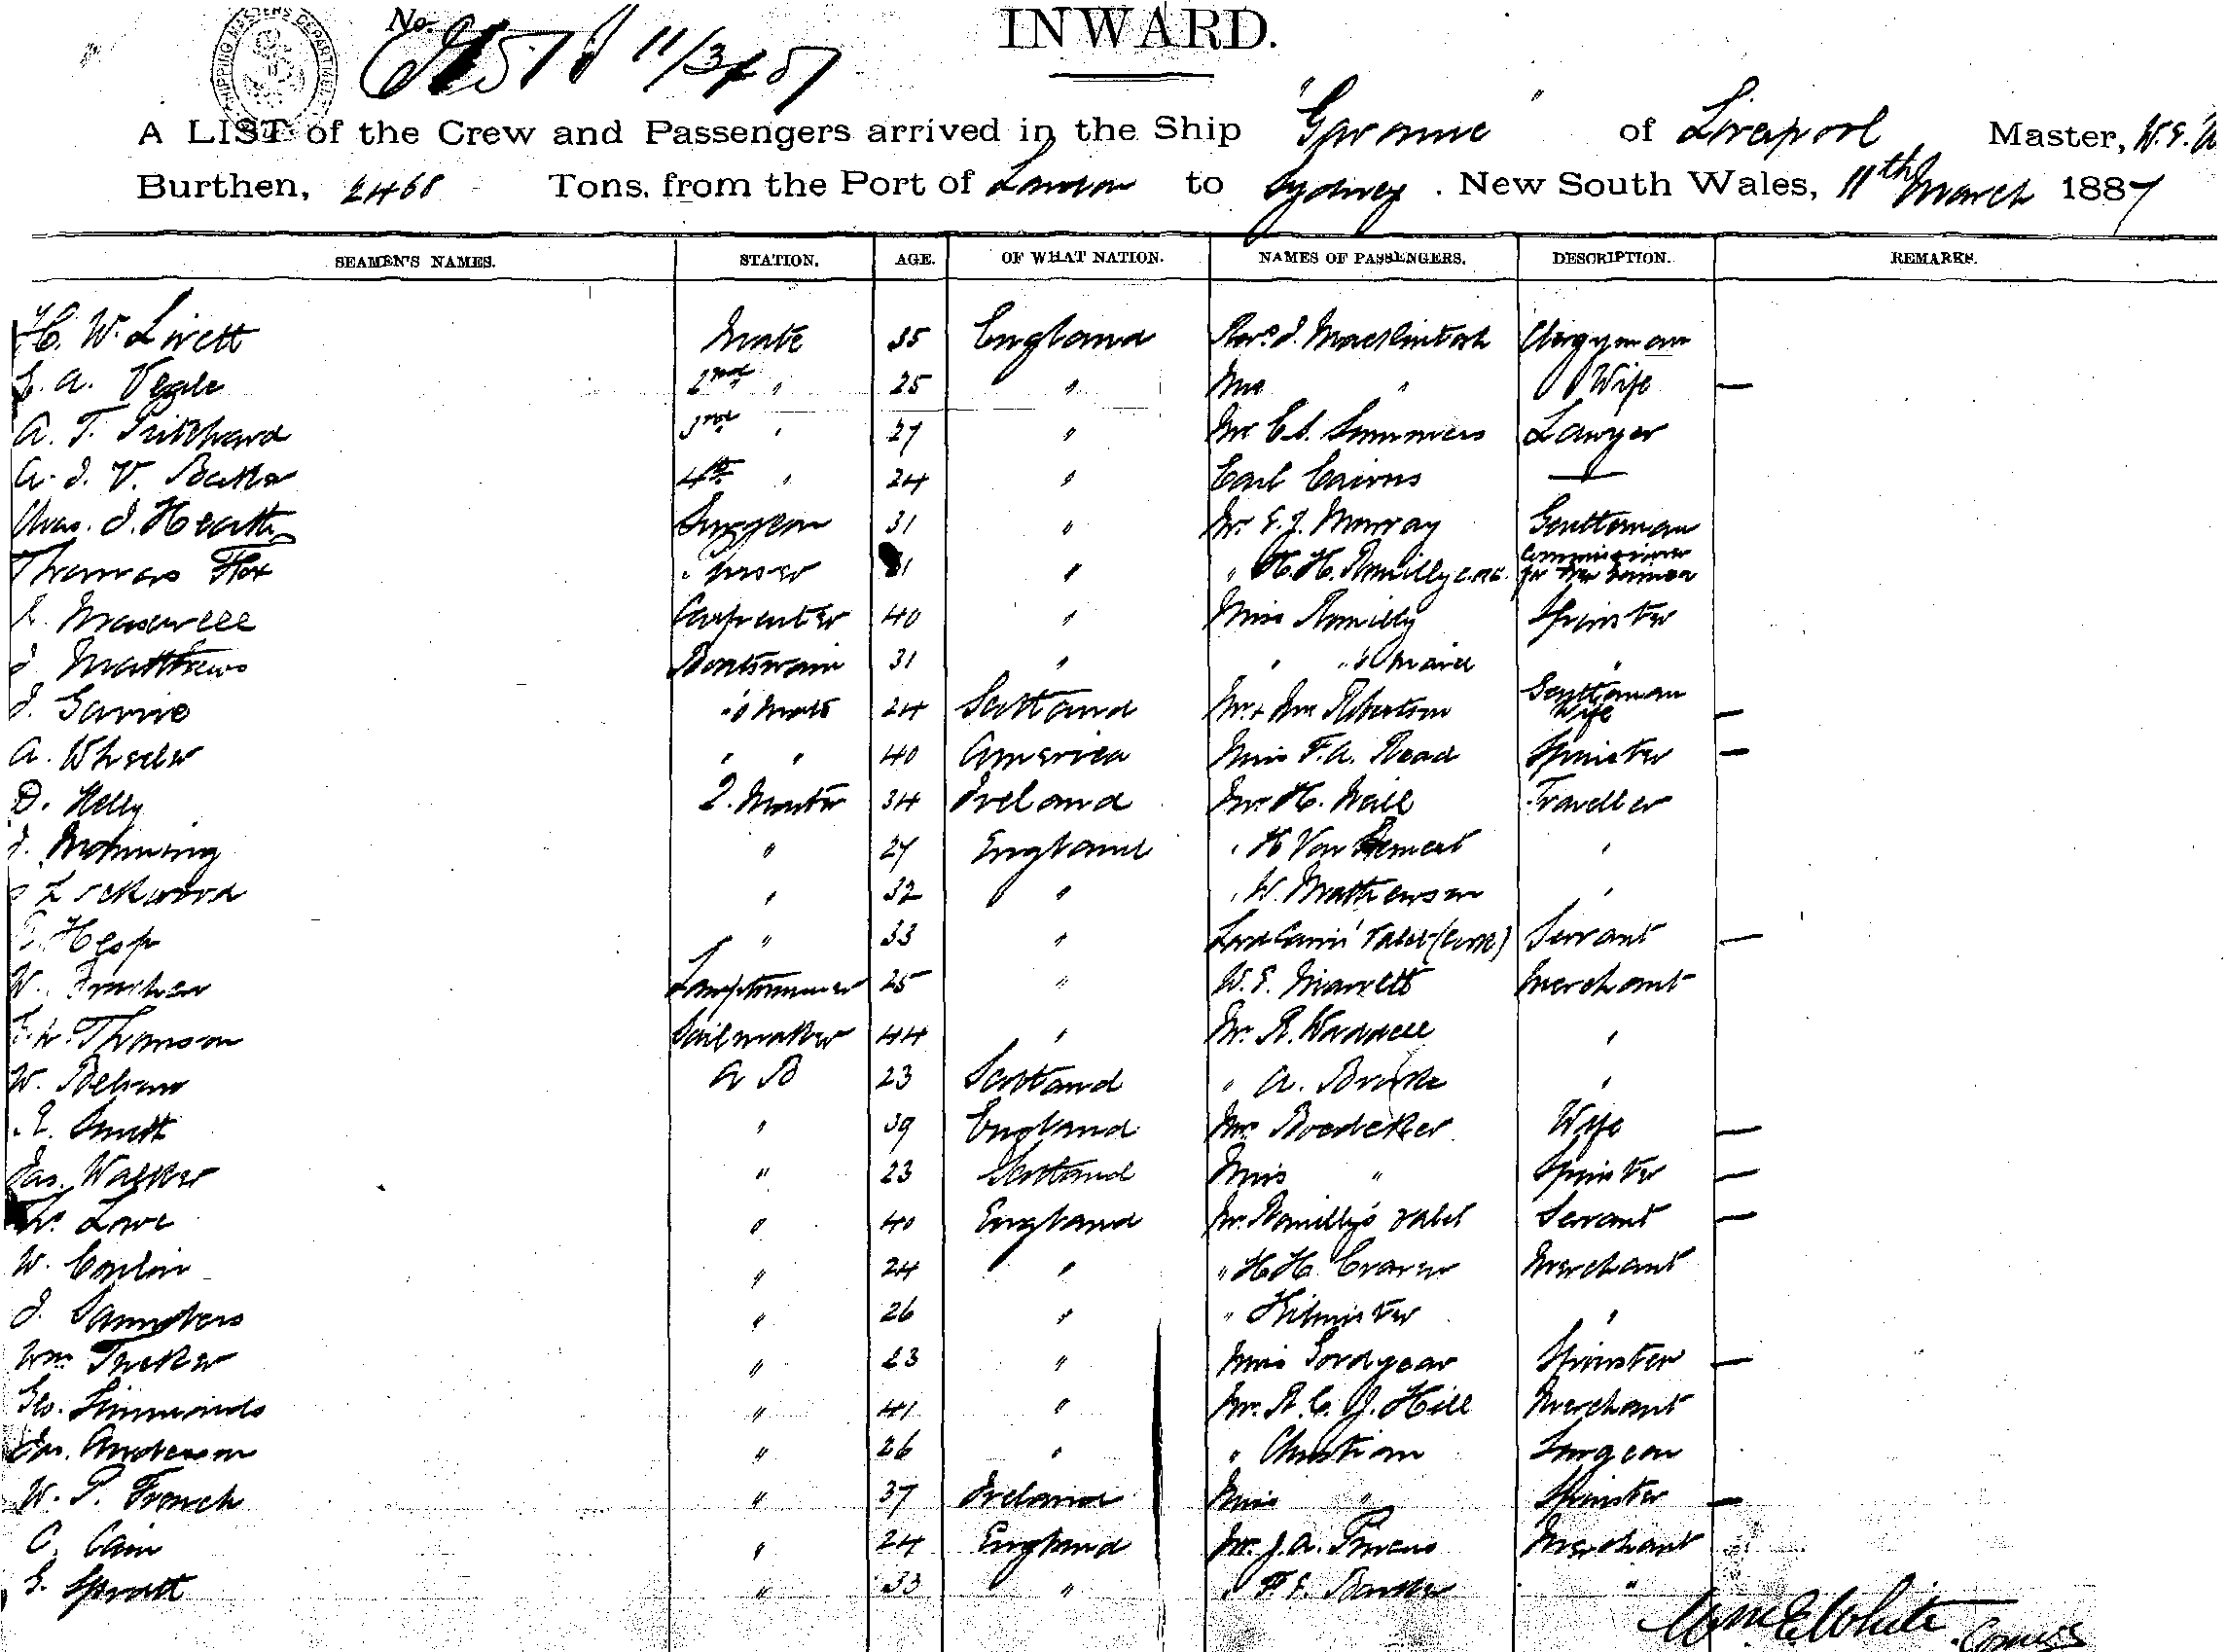 SHIPPING MASTERS DEPARTMENT
No. 11/3/87
INWARD.
A LIST of the Crew and Passengers arrived in the Ship "Garonne" of Liverpool Master, W. E.
Burthen, 2468 Tons, from the Port of London to Sydney, New South Wales, 11th March 1887
SEAMEN'S NAMES. STATION. AGE. OF WHAT NATION. NAMES OF PASSENGERS. DESCRIPTION. REMARKS.
H. W. Livett Mate 35 England Revd. J. MacKintosh Clergyman
E. A. Veale 2nd " 25 " Mrs " Wife —
A. T. Pritchard 3rd " 27 " Mr C. S. Summers Lawyer
A. J. V. 4th " 24 " Earl Cairns —
Chas. J. Heath Surgeon 31 " Mr. E. J. Murray Gentleman
Thomas Fox Purser 31 " " H. H. Romilly C.M.G. Commissioner for New Guinea
Maxwell Carpenter 40 " Miss Romilly Spinster
J. Matthews Boatswain 31 " " "'s Maid "
J. Garrie "'s Mate 24 Scotland Mr. & Mrs Robertson Gentleman Wife —
A. Wheeler " " 40 America Miss F. A. Read Spinster —
D. Kelly Q. Master 34 Ireland Mr. H. Neill Traveller
" 27 England " H Van "
Lockwood " 32 " " W. Mathewson "
Hesp " 33 " Lord Cairns' Valet Servant —
W. Lamptrimmer 25 " W. E. Marrett Merchant
Thomson Sailmaker 44 " Mr. R. Waddell "
W. A B 23 Scotland " A. "
Smith " 39 England Mrs Boedeker Wife —
Jas. Walker " 23 Scotland Miss " Spinster —
Love " 40 England Mr. Romilly's Valet Servant —
W. Conlin " 24 " " H H. Craven Merchant
J. Saunders " 26 " " Kilminster "
Wm. Tucker " 23 " " Miss Goodyear Spinster —
Geo. Simmonds " 41 " Mr. R. C. J. Hill Merchant
Jas. Anderson " 26 " " Christian Surgeon
W. P. French " 37 Ireland Miss " Spinster —
C. Cain " 24 England Mr. J. A. Merchant
G. Spratt " 33 " " F. E. "
Wm E White